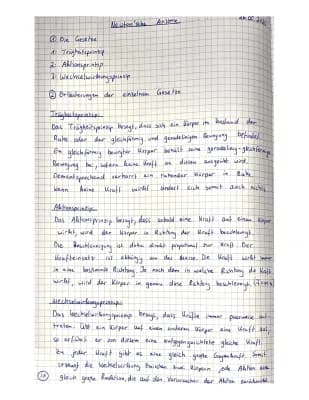 Newton'sche Axiome
① Die Gesetze
1. Trägheitsprinzip
2. Aktionsprinzip
3. Wechselwirkungsprinzip
② Erläuterungen der einzelnen Gesetze
Trägheitsprinzip:
Das Trägheitsprinzip besagt, dass sich ein Körper im Zustand der
Ruhe oder der gleichförmig und geradlinigen Bewegung befindet.
Ein gleichförmig bewegter Körper behält seine geradlinig-gleichförmige
Bewegung bei, sofern keine Kraft an diesen ausgeübt wird.
Dementsprechend verharrt ein ruhender Körper in Ruhe.
Wenn keine Kraft wirkt ändert sich somit auch nichts.
Aktionsprinzip:
Das Aktionsprinzip besagt, dass sobald eine Kraft auf einen Körper
wirkt, wird der Körper in Richtung der Kraft beschleunigt.
Die Beschleunigung ist dabei direkt proportional zur Kraft. Der
Krafteinsatz ist abhängig von der Masse. Die Kraft wirkt immer
in eine bestimmte Richtung. Je nach dem in welche Richtung die Kraft
wirkt, wird der Körper in genau diese Richtung beschleunigt.
Wechselwirkungsprinzip:
Das Wechselwirkungsprinzip besagt, dass Kräfte immer paarweise auf-
treten. Übt ein Körper auf einen anderen Körper eine Kraft aus,
so erfährt er von diesem eine entgegengerichtete gleiche Kraft.
Zu jeder Kraft gibt es eine gleich große Gegenkraft. Somit
erzeugt die Wechselwirkung zwischen zwei Körpern jede Aktion eine
gleich große Reaktion, die auf den Verursacher der Aktion zurückwirkt.